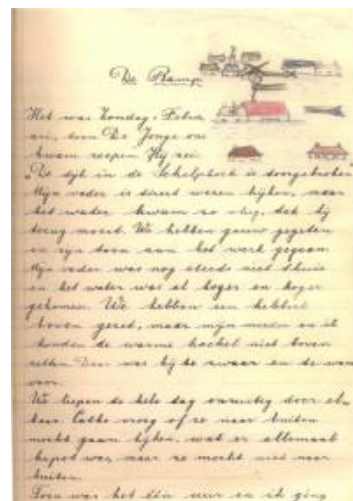 De Ramp
Het was Zondag 1 Febru
ari, toen De Jonge ons
kwam roepen. Hij zei:
„De dijk in de Schelphoek is doorgebroken
Mijn vader is direct weren kijken, maar
het water kwam zo vlug, dat hij
terug moest. We hebben gauw gegeten
en zijn toen aan het werk gegaan.
Mijn vader was nog steeds niet thuis
en het water was al hoger en hoger
gekomen. We hebben een
boven gezet, maar mijn moeder en ik
konden de warme kachel niet boven
zetten. Daar was hij te zwaar en te warm
voor.
We liepen de hele dag onrustig door el-
kaar. vroeg of ze naar buiten
mocht gaan kijken, wat er allemaal
kapot was, maar ze mocht niet naar
buiten.
Toen was het één uur en ik ging